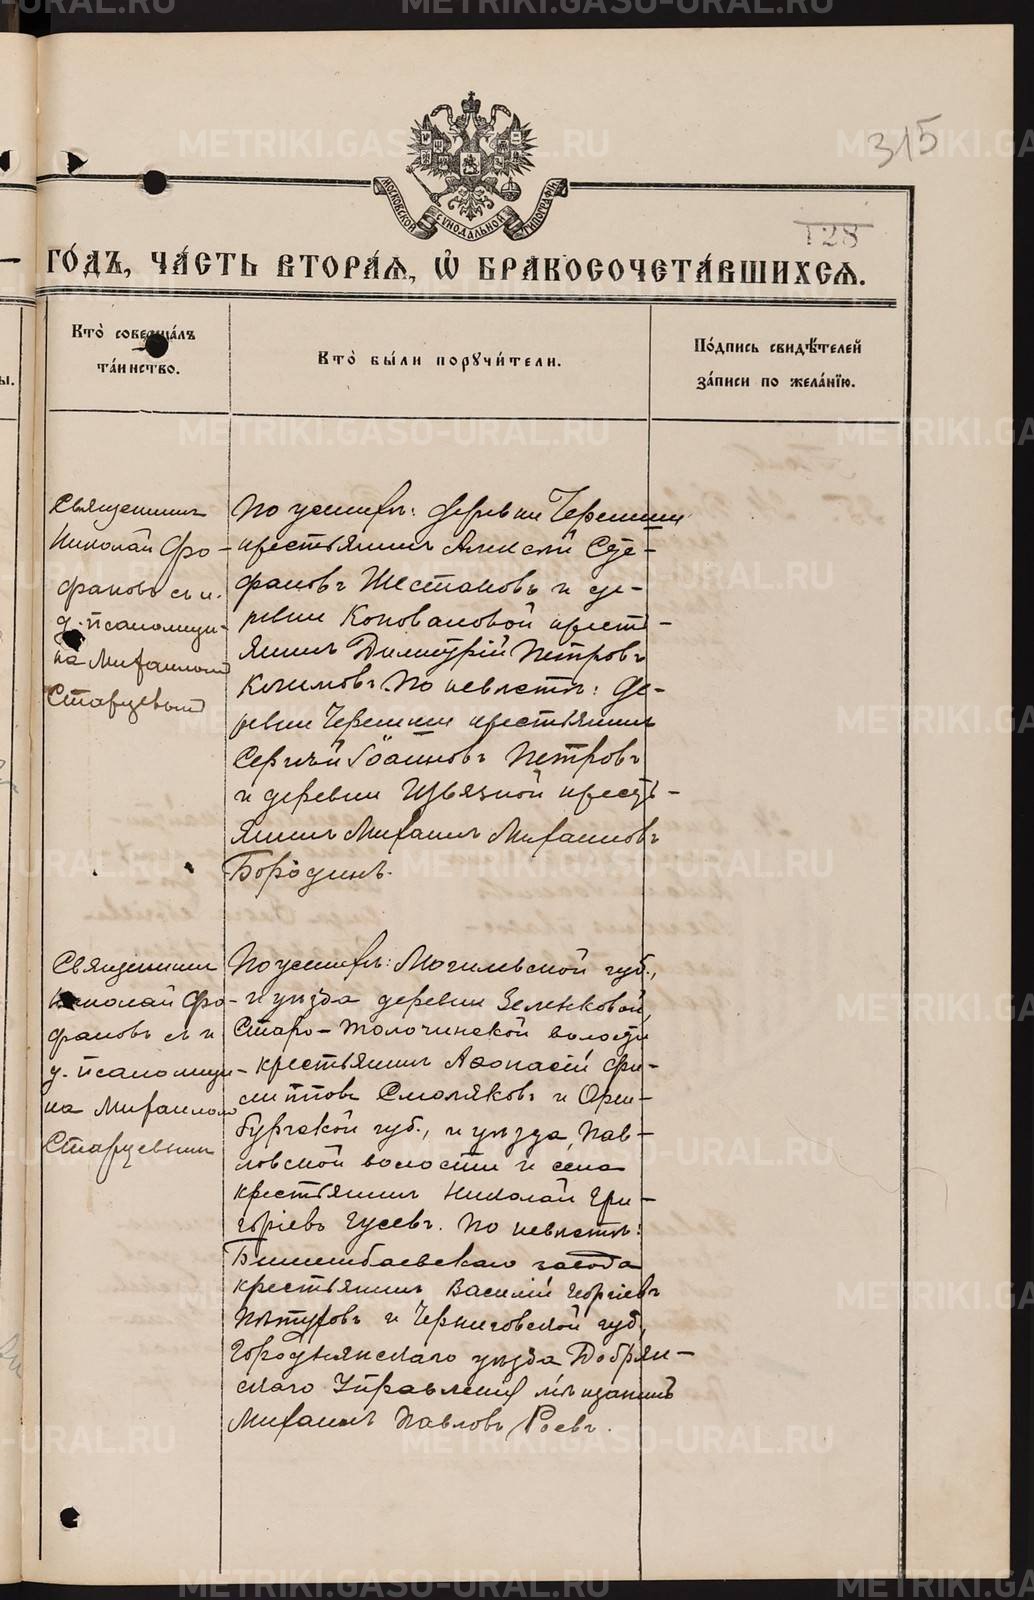 315
128
МОСКОВСКОЙ СѴНОДАЛЬНОЙ ТИПОГРАФІИ
ГО́ДЪ, ЧА́СТЬ ВТОРА́Ѧ, Ѽ БРАКОСОЧЕТА́ВШИХСѦ.
Кто̀ соверша́лъ
та́инство.
Кто̀ бы́ли порꙋчи́тели.
По́дпись свидѣ́телей
за́писи по жела́нїю.
Священникъ
Николай Фо-
фановъ съ и.
д. псаломщи-
ка Михаиломъ
Старцевымъ
По женихѣ: деревни Черемши
крестьянинъ Алексѣй Сте-
фановъ Шестаковъ и де-
ревни Коноваловой кресть-
янинъ Димитрій Петровъ
По невѣстѣ: де-
ревни Черемши крестьянинъ
Сергѣй Іоанновъ Петровъ
и деревни Извязной кресть-
янинъ Михаилъ Михаиловъ
Бородинъ.
Священникъ
Николай Фо-
фановъ съ и
д. псаломщи-
ка Михаиломъ
Старцевымъ
По женихѣ: Могилевской губ.,
и уѣзда деревни Зеленковой,
Старо-Толочинской волости
крестьянинъ Аѳонасій Фи-
липповъ Смоляковъ и Орен-
бургской губ., и уѣзда, Пав-
ловской волости и села
крестьянинъ Николай Гри-
горіевъ Гусевъ. По невѣстѣ:
Билимбаевскаго завода
крестьянинъ Василій Георгіевъ
Пѣтуховъ и Черниговской губ.
Городнянскаго уѣзда Добрян-
скаго Управленія мѣщанинъ
Михаилъ Павловъ Роевъ.
METRIKI.GASO-URAL.RU